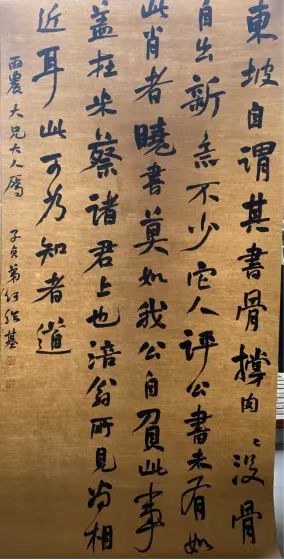 東坡自謂其書骨撐肉〻沒骨
自出新意不少它人評公書未有如
此肖者曉書莫如我公自負此事
蓋在米蔡諸君上也涪翁所見尚相
近耳此可為知者道
農大兄大人屬 子貞弟何紹基